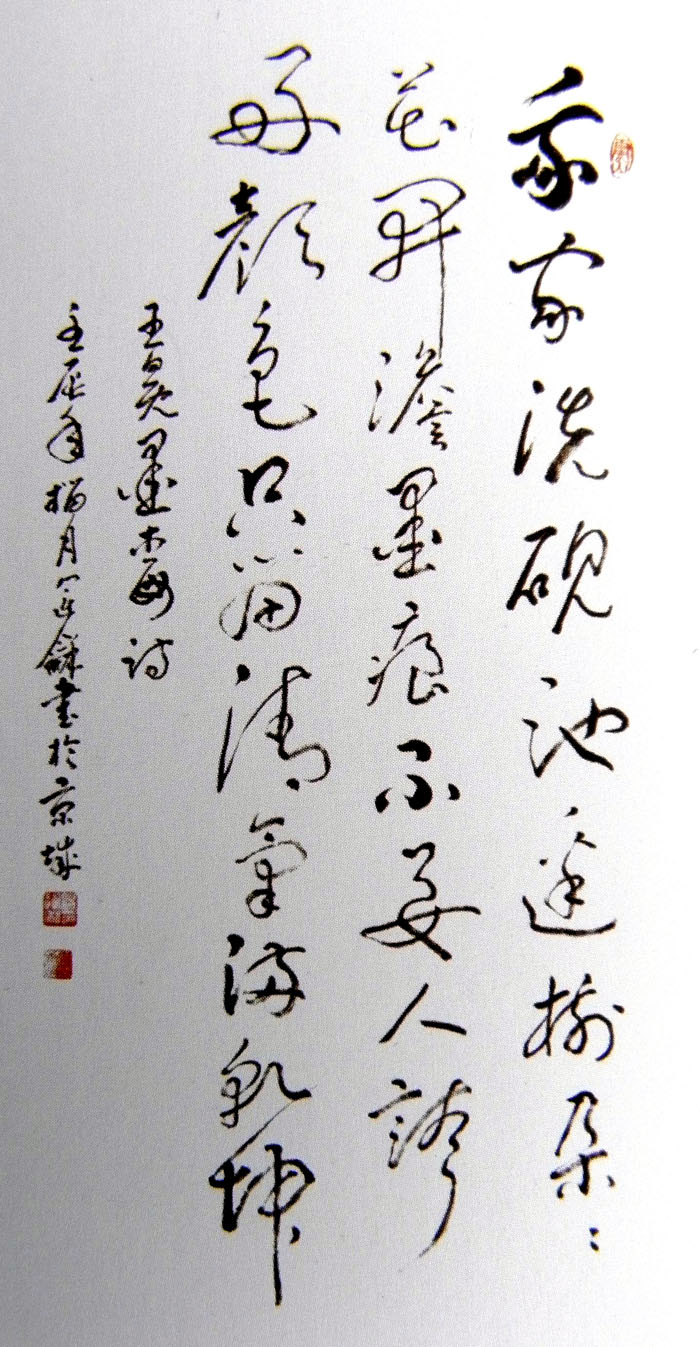 我家洗硯池邊樹朵〻
花開澹墨痕不要人誇
好顏色只留清氣滿乾坤
王冕墨梅詩
壬辰年榴月書於京城